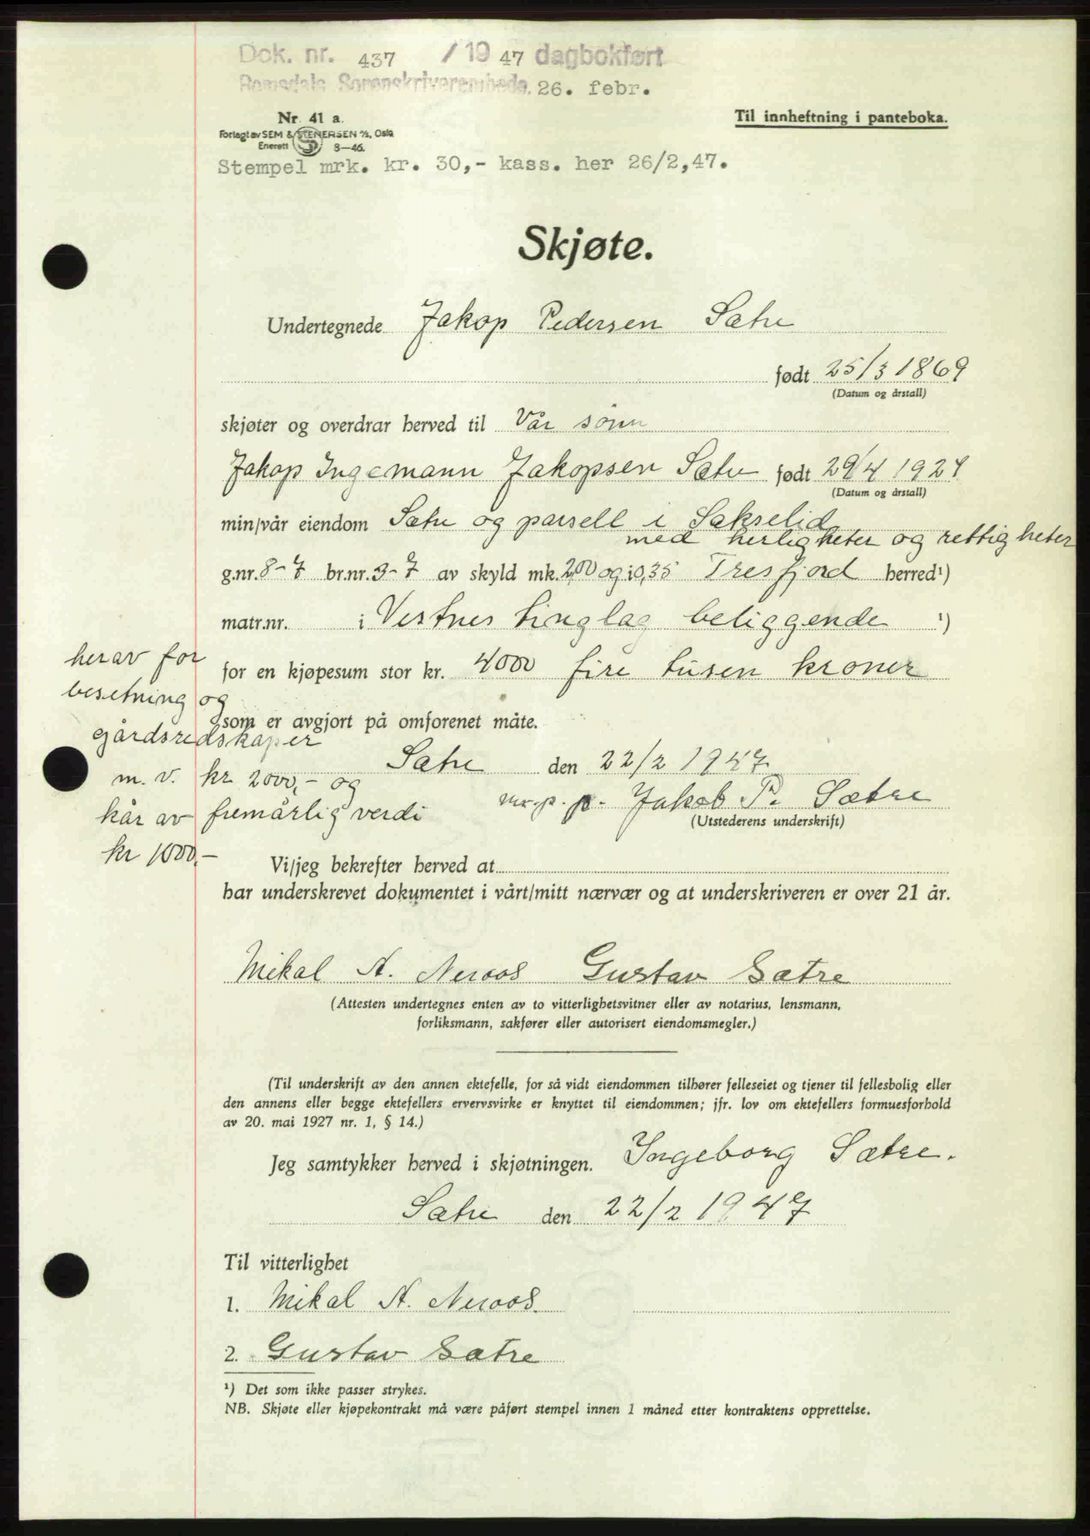 Dok. nr. 437 / 19 47 dagbokført
Romsdals Sorenskriverembede, 26. febr.
Nr. 41 a.
Til innheftning i panteboka.
Forlagt av SEM & STENERSEN A/S, Oslo
Enerett 8—46.
Stempel mrk. kr. 30,- kass. her 26/2,47.
Skjøte.
Undertegnede Jakop Pedersen Sætre
født 25/3 1869
(Datum og årstall)
skjøter og overdrar herved til Vår sønn
Jakop Ingemann Jakopsen Sætre født 29/4 1927
(Datum og årstall)
min/vår eiendom Sætre og parsell i Sakselid
med herligheter og rettigheter
g.nr. 8-7 br.nr. 3-7 av skyld mk. 2,00 og i 0,35 Tresfjord herred¹)
matr.nr. i Vestnes tinglag beliggende ¹)
for en kjøpesum stor kr. 4000 fire tusen kroner
herav for
besetning og
gårdsredskaper
m. v. kr 2000,- og
kår av femårlig verdi
kr 1000,-
som er avgjort på omforenet måte.
Sætre den 22/2 1947
m.p.p. Jakob P. Sætre
(Utstederens underskrift)
Vi/jeg bekrefter herved at
har underskrevet dokumentet i vårt/mitt nærvær og at underskriveren er over 21 år.
Mikal A. Neraas Gustav Sætre
(Attesten undertegnes enten av to vitterlighetsvitner eller av notarius, lensmann,
forliksmann, sakfører eller autorisert eiendomsmegler.)
(Til underskrift av den annen ektefelle, for så vidt eiendommen tilhører felleseiet og tjener til fellesbolig eller
den annens eller begge ektefellers ervervsvirke er knyttet til eiendommen; jfr. lov om ektefellers formuesforhold
av 20. mai 1927 nr. 1, § 14.)
Jeg samtykker herved i skjøtningen. Ingeborg Sætre.
Sætre den 22/2 1947
Til vitterlighet
1. Mikal A. Neraas.
2. Gustav Sætre
¹) Det som ikke passer strykes.
NB. Skjøte eller kjøpekontrakt må være påført stempel innen 1 måned etter kontraktens opprettelse.